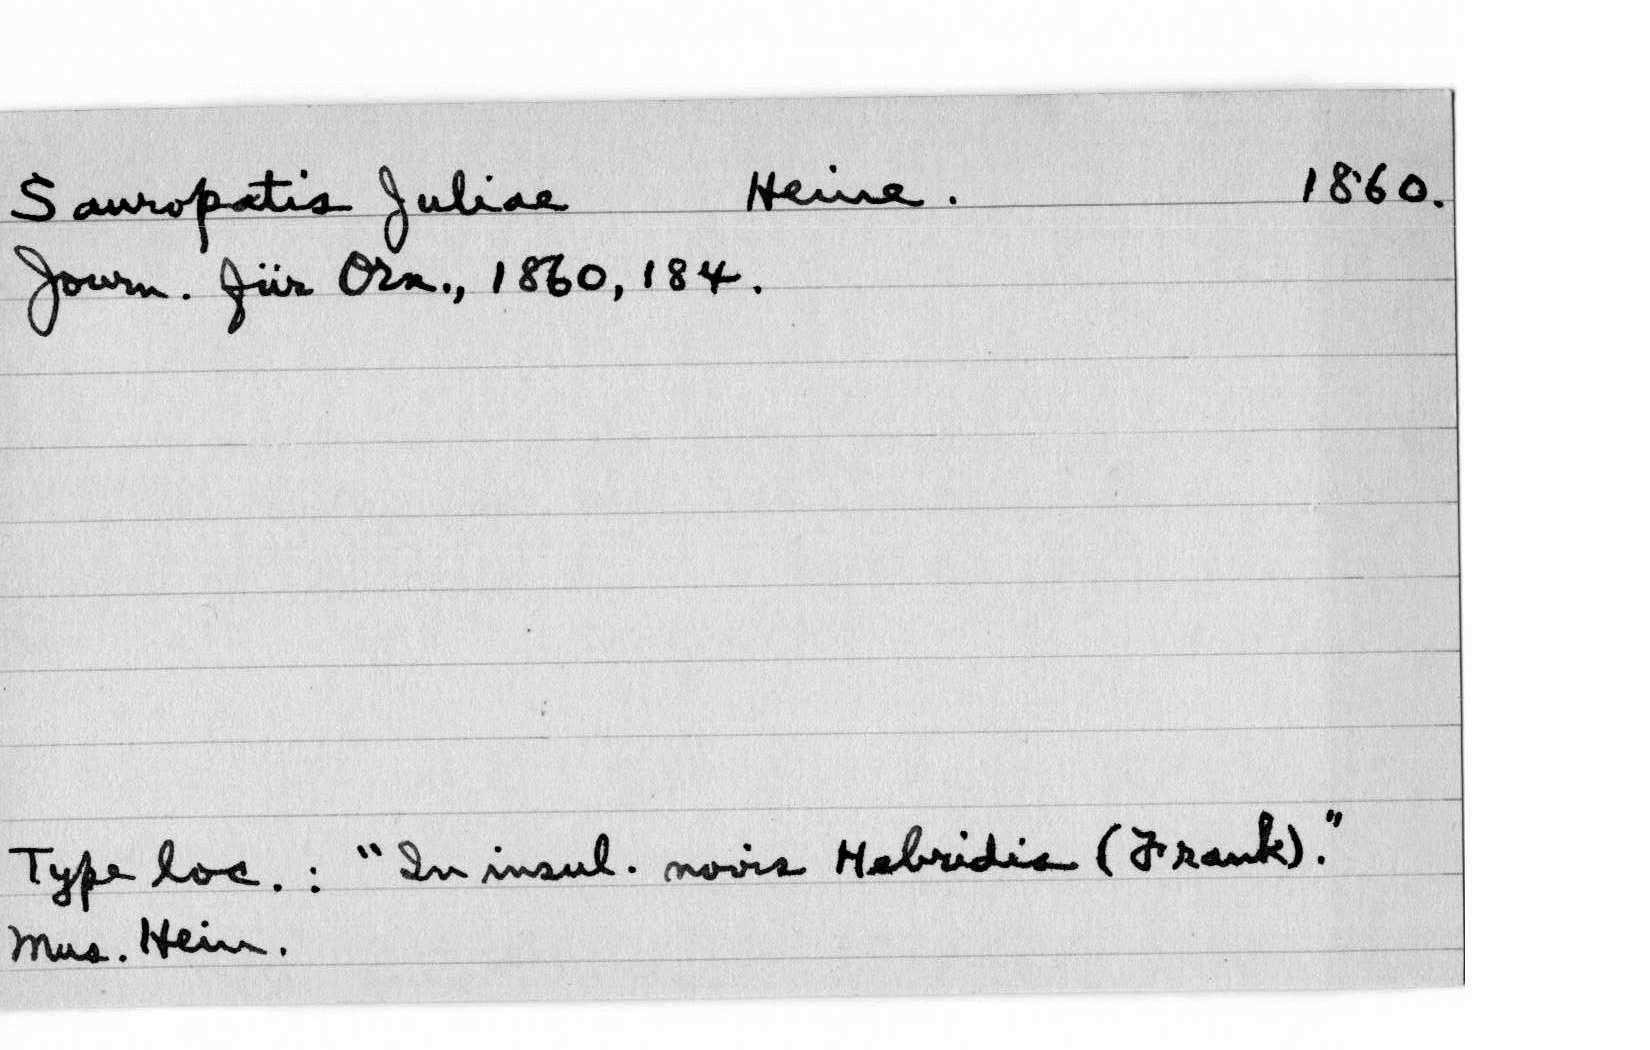 Sauropatis Juliae Heine. 1860.
Journ. für Orn., 1860, 184.
Type loc.: "In insul. novis Hebridis (Frank)."
Mus. Hein.